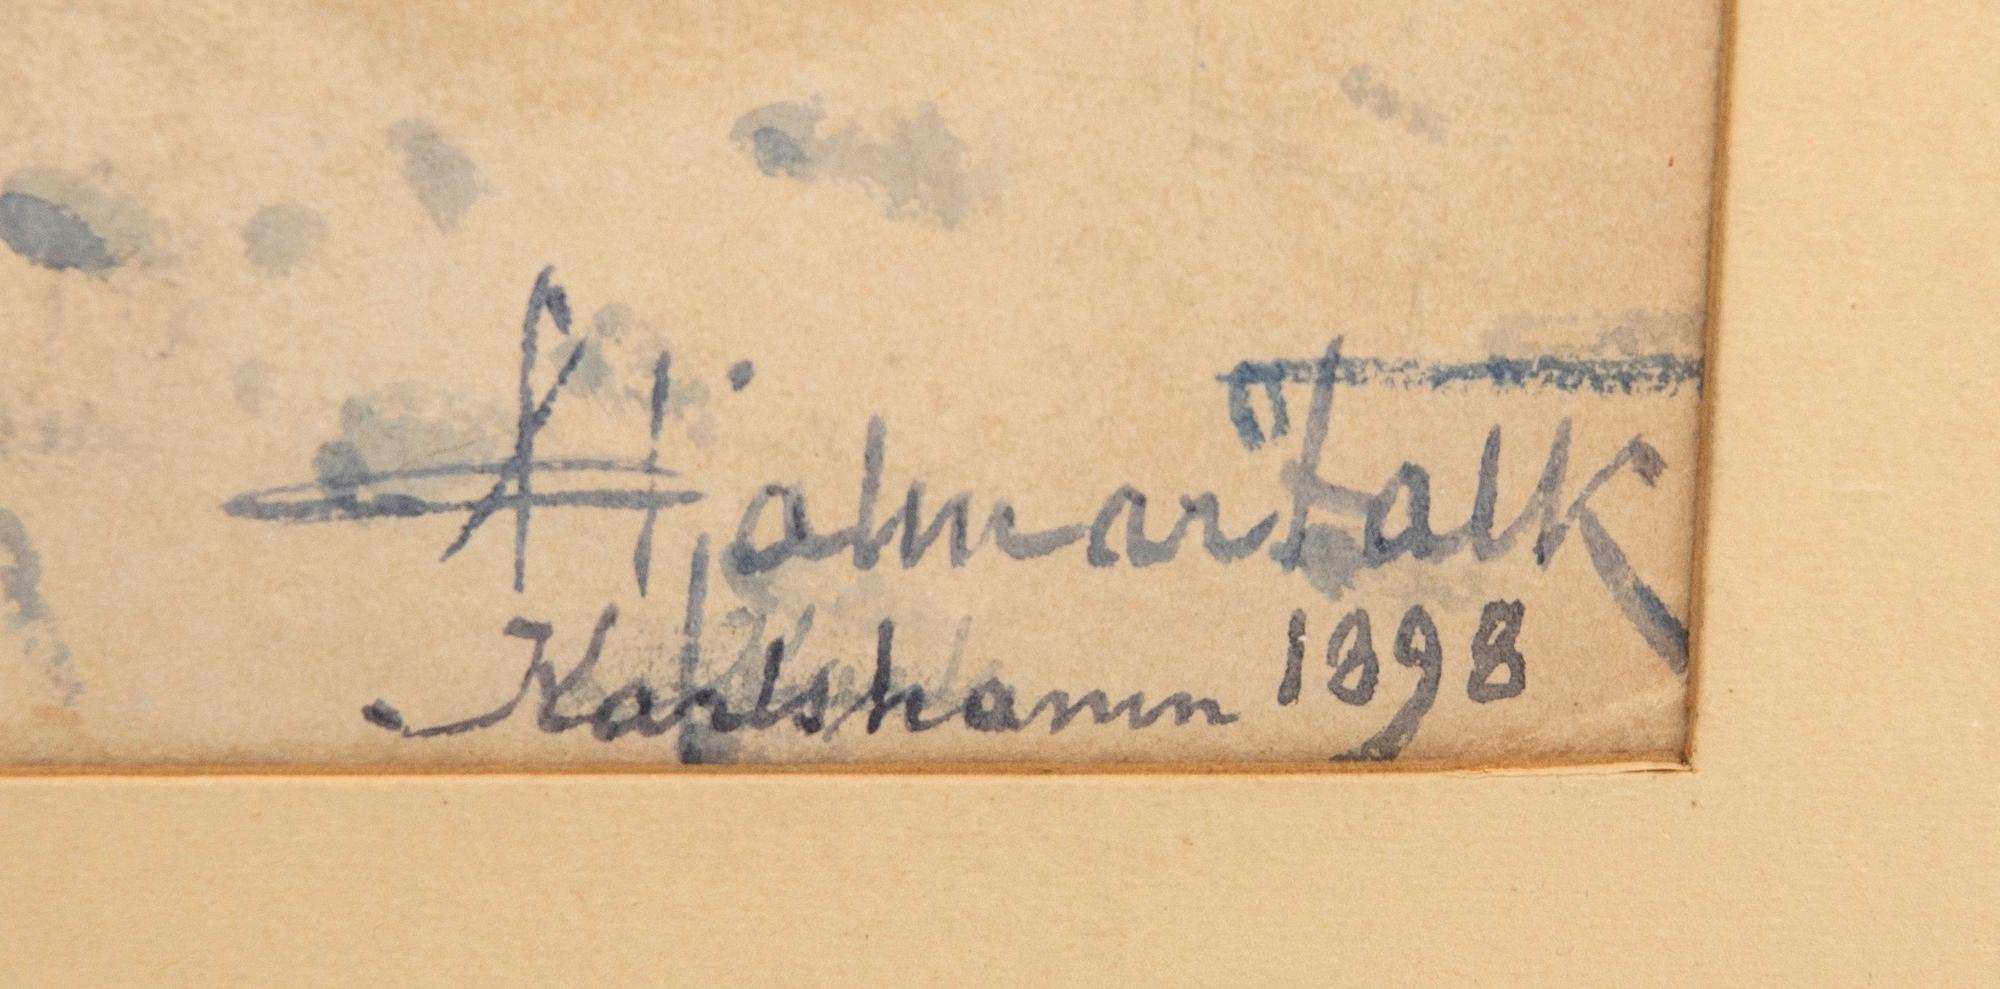 Hjalmar Falk
Karlshamn 1898